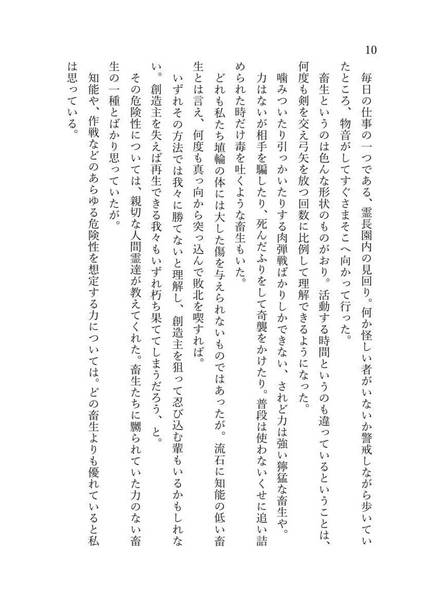 10
毎日の仕事の一つである、霊長園内の見回り。何か怪しい者がいないか警戒しながら歩いてい
たところ、物音がしてすぐさまそこへ向かって行った。
畜生というのは色んな形状のものがおり。活動する時間というのも違っているということは、
何度も剣を交え弓矢を放つ回数に比例して理解できるようになった。
噛みついたり引っかいたりする肉弾戦ばかりしかできない、されど力は強い獰猛な畜生や。
力はないが相手を騙したり、死んだふりをして奇襲をかけたり。普段は使わないくせに追い詰
められた時だけ毒を吐くような畜生もいた。
どれも私たち埴輪の体には大した傷を与えられないものではあったが。流石に知能の低い畜
生とは言え、何度も真っ向から突っ込んで敗北を喫すれば。
いずれその方法では我々に勝てないと理解し、創造主を狙って忍び込む輩もいるかもしれな
い。創造主を失えば再生できる我々もいずれ朽ち果ててしまうだろう、と。
その危険性については、親切な人間霊達が教えてくれた。畜生たちに嬲られていた力のない畜
生の一種とばかり思っていたが。
知能や、作戦などのあらゆる危険性を想定する力については。どの畜生よりも優れていると私
は思っている。